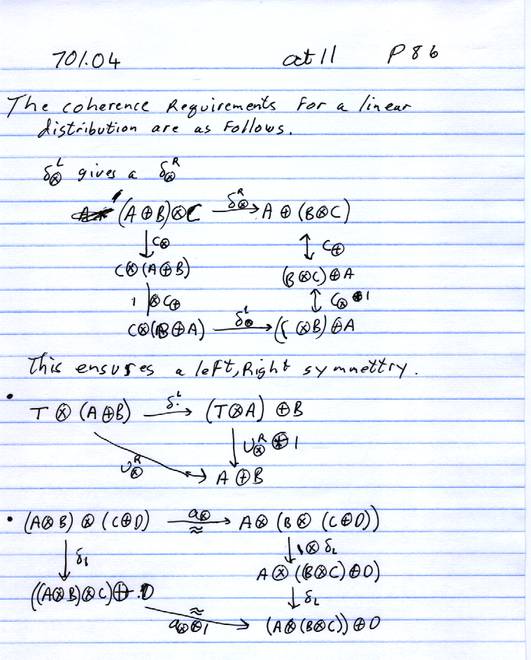 701.04 oct 11 P 86
The coherence Requirements for a linear
distribution are as follows.
δ⊗ᴸ gives a δ⊗ᴿ
(A ⊕ B) ⊗ C δ⊗ᴿ → A ⊕ (B ⊗ C)
↓ C⊗ ↕ C⊕
C ⊗ (A ⊕ B) (B ⊗ C) ⊕ A
1 ⊗ C⊕ ↕ C⊗ ⊕ 1
C ⊗ (B ⊕ A) δ⊗ᴸ → (C ⊗ B) ⊕ A
This ensures a left, Right symmettry.
• T ⊗ (A ⊕ B) δᴸ → (T ⊗ A) ⊕ B
U⊗ᴿ ↓ U⊗ᴿ ⊕ 1
A ⊕ B
• (A ⊗ B) ⊗ (C ⊕ D) a⊗ ≈ → A ⊗ (B ⊗ (C ⊕ D))
↓ δ₁ ↓ 1 ⊗ δL
A ⊗ ((B ⊗ C) ⊕ D)
((A ⊗ B) ⊗ C) ⊕ D ↓ δL
≈ a⊗ ⊕ 1 → (A ⊗ (B ⊗ C)) ⊕ D